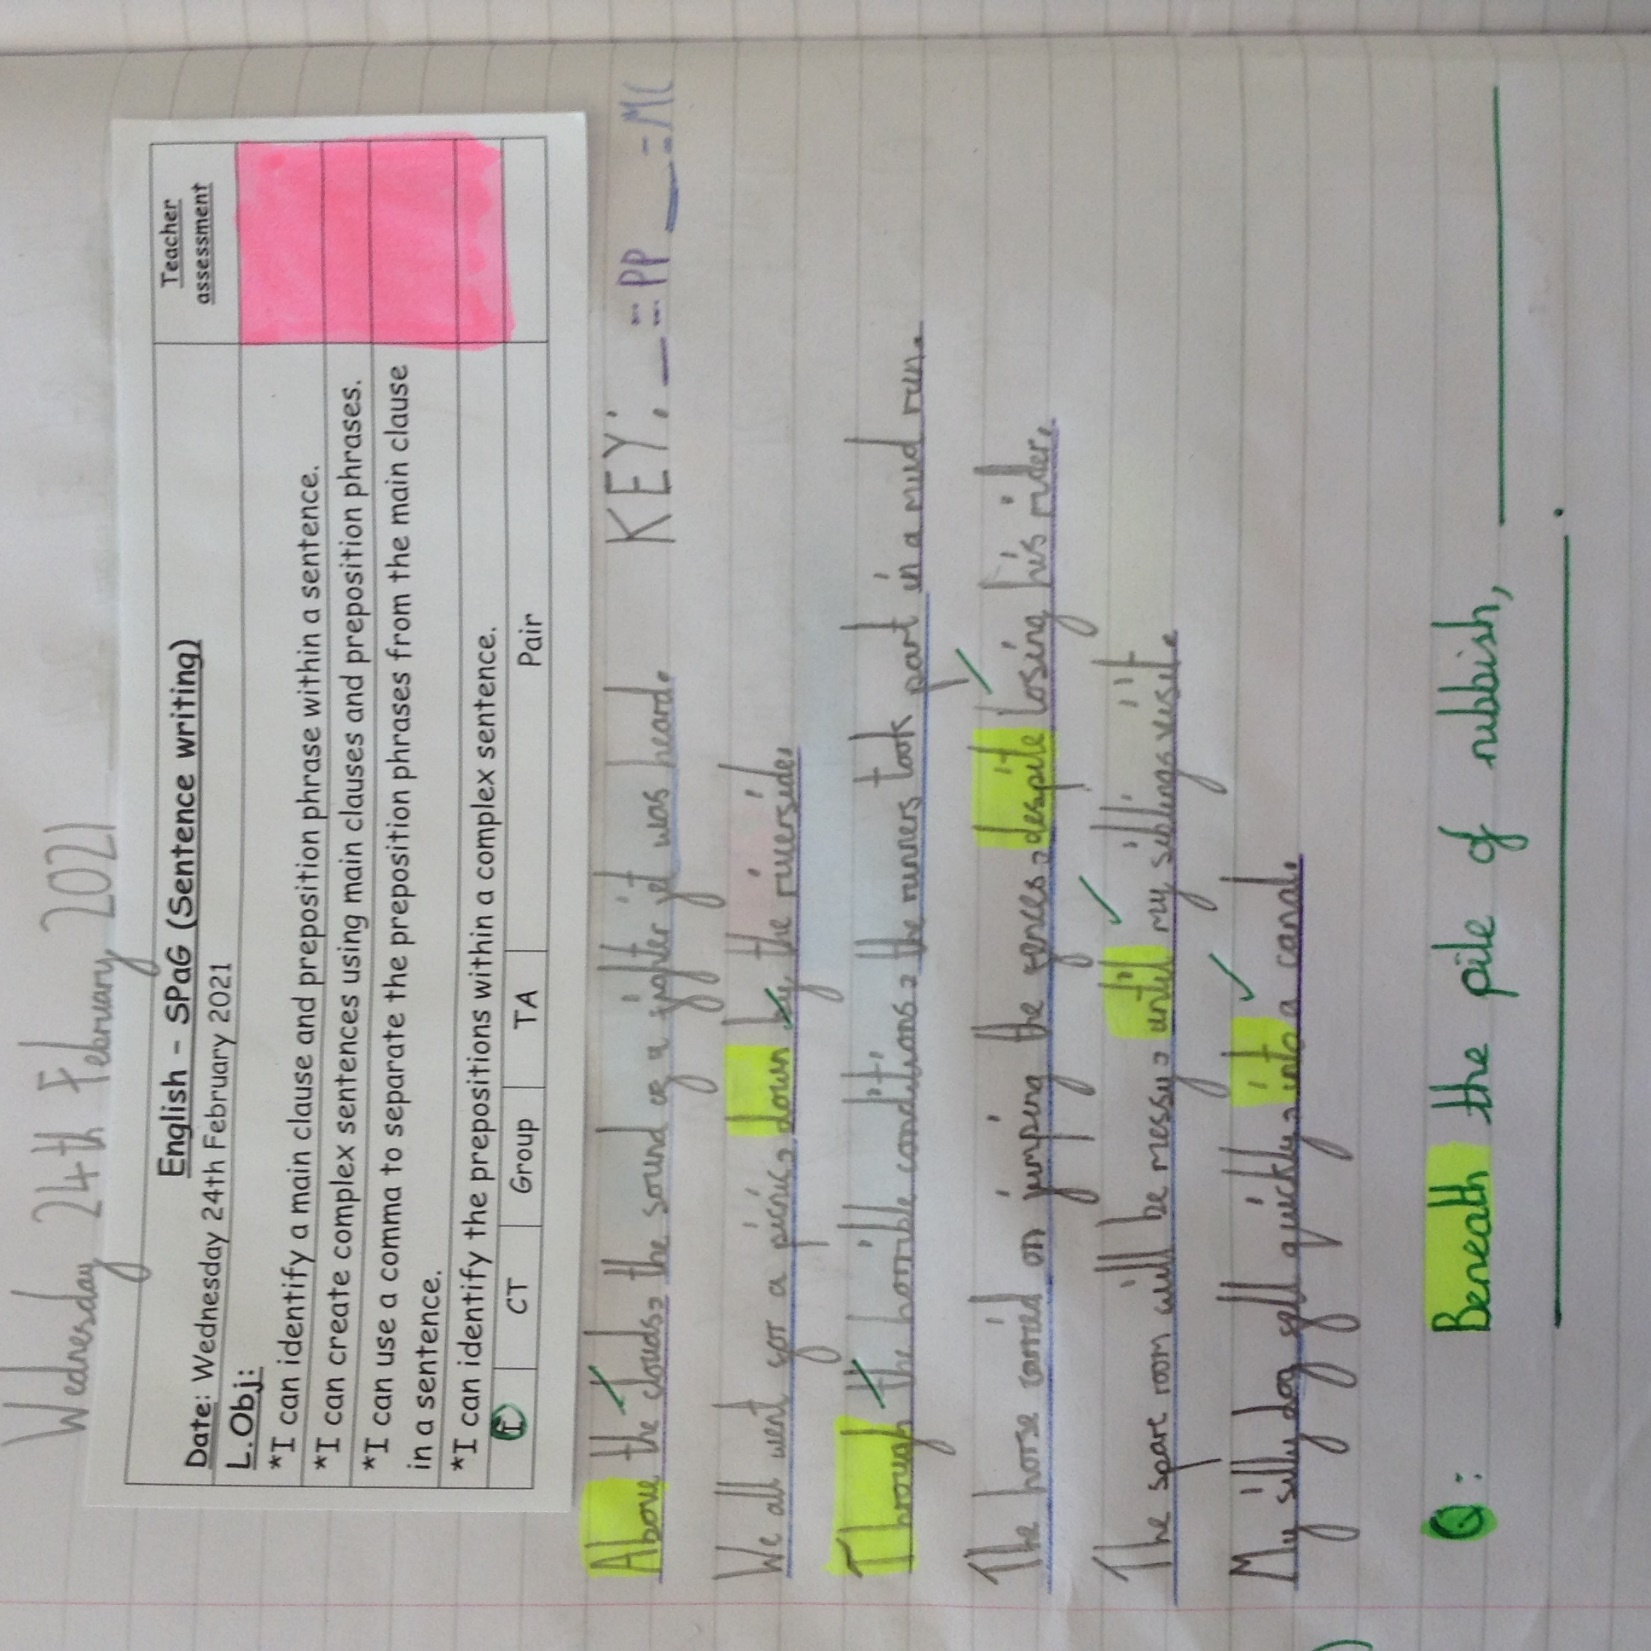 Wednesday 24th February 2021
English - SPaG (Sentence writing)
Teacher assessment
Date: Wednesday 24th February 2021
L.Obj:
*I can identify a main clause and preposition phrase within a sentence.
*I can create complex sentences using main clauses and preposition phrases.
*I can use a comma to separate the preposition phrases from the main clause
in a sentence.
*I can identify the prepositions within a complex sentence.
I CT Group TA Pair
Above the clouds, the sound of a fighter jet was heard. KEY: _ = PP _ = MC
We all went for a picnic, down by the riverside.
Through the horrible conditions, the runners took part in a mud run.
The horse carried on jumping the fences, despite losing his rider.
The spare room will be messy, until my siblings visit.
My silly dog fell quickly, into a canal.
Q: Beneath the pile of rubbish, ________
________.